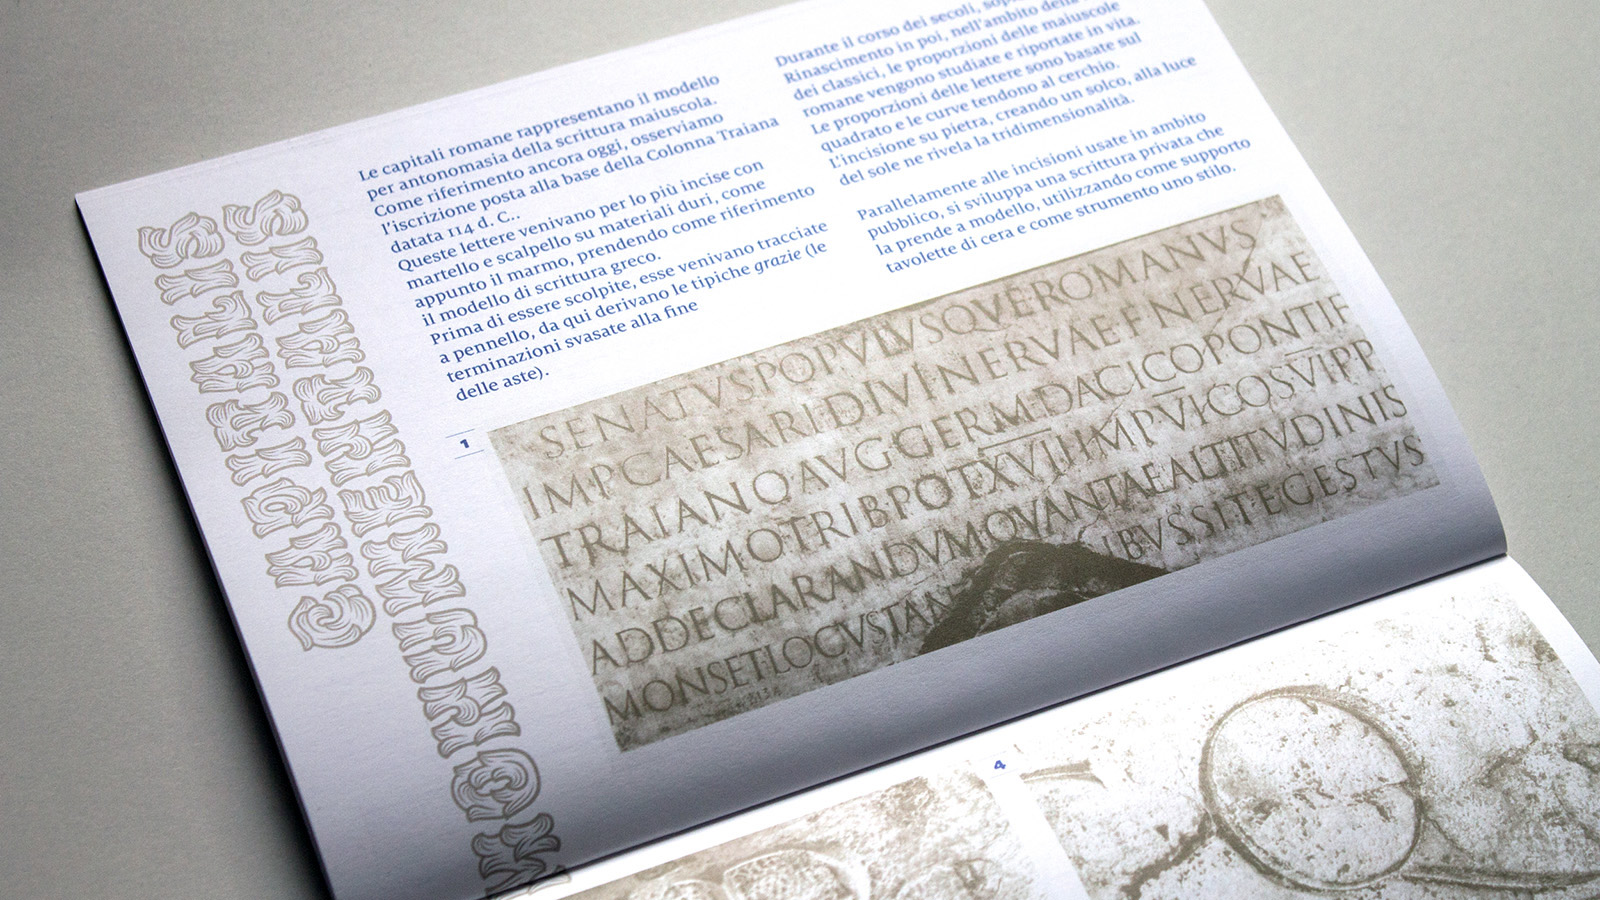 Le capitali romane rappresentano il modello
per antonomasia della scrittura maiuscola.
Come riferimento ancora oggi, osserviamo
l'iscrizione posta alla base della Colonna Traiana
datata 114 d. C..
Queste lettere venivano per lo più incise con
martello e scalpello su materiali duri, come
appunto il marmo, prendendo come riferimento
il modello di scrittura greco.
Prima di essere scolpite, esse venivano tracciate
a pennello, da qui derivano le tipiche grazie (le
terminazioni svasate alla fine
delle aste).
Durante il corso dei secoli,
Rinascimento in poi, nell'ambito della
dei classici, le proporzioni delle maiuscole
romane vengono studiate e riportate in vita.
Le proporzioni delle lettere sono basate sul
quadrato e le curve tendono al cerchio.
L'incisione su pietra, creando un solco, alla luce
del sole ne rivela la tridimensionalità.
Parallelamente alle incisioni usate in ambito
pubblico, si sviluppa una scrittura privata che
la prende a modello, utilizzando come supporto
tavolette di cera e come strumento uno stilo.
1
SENATVSPOPVLVSQVEROMANVS
IMPCAESARIDIVINERVAEFNERVAE
TRAIANOAVGGERMDACICOPONTIF
MAXIMOTRIBPOTXVIIIMPVICOSVIPP
ADDECLARANDVMQVANTAEALTITVDINIS
MONSETLOCVSTAN IBVSSITEGESTVS
4